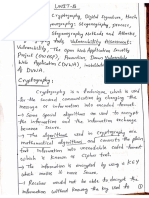 UNIT-III
Cryptography, Digital Signature, Hash
Steganography: Steganography, process,
Steganography Methods and Attacks,
Vulnerability Assessment:
Vulnerability, The Open Web Application Security
Project (OWASP), Prevention, Damn Vulnerable
Web Application (DVWA), Installation
of DVWA.
Cryptography:
Cryptography is a technique, which is used
in the secured communication by changing the
information into encoded format.
Some special algorithms are used to encrypt
the information and the information exchange
become secure.
The algorithms used in Cryptography are
mathematical algorithms and converts the
information into unreadable coded format
which is known as Cipher text.
The information is encrypted by using a KEY
which makes it more secure.
Receiver could not be able to decrypt the
information without knowing the key used to